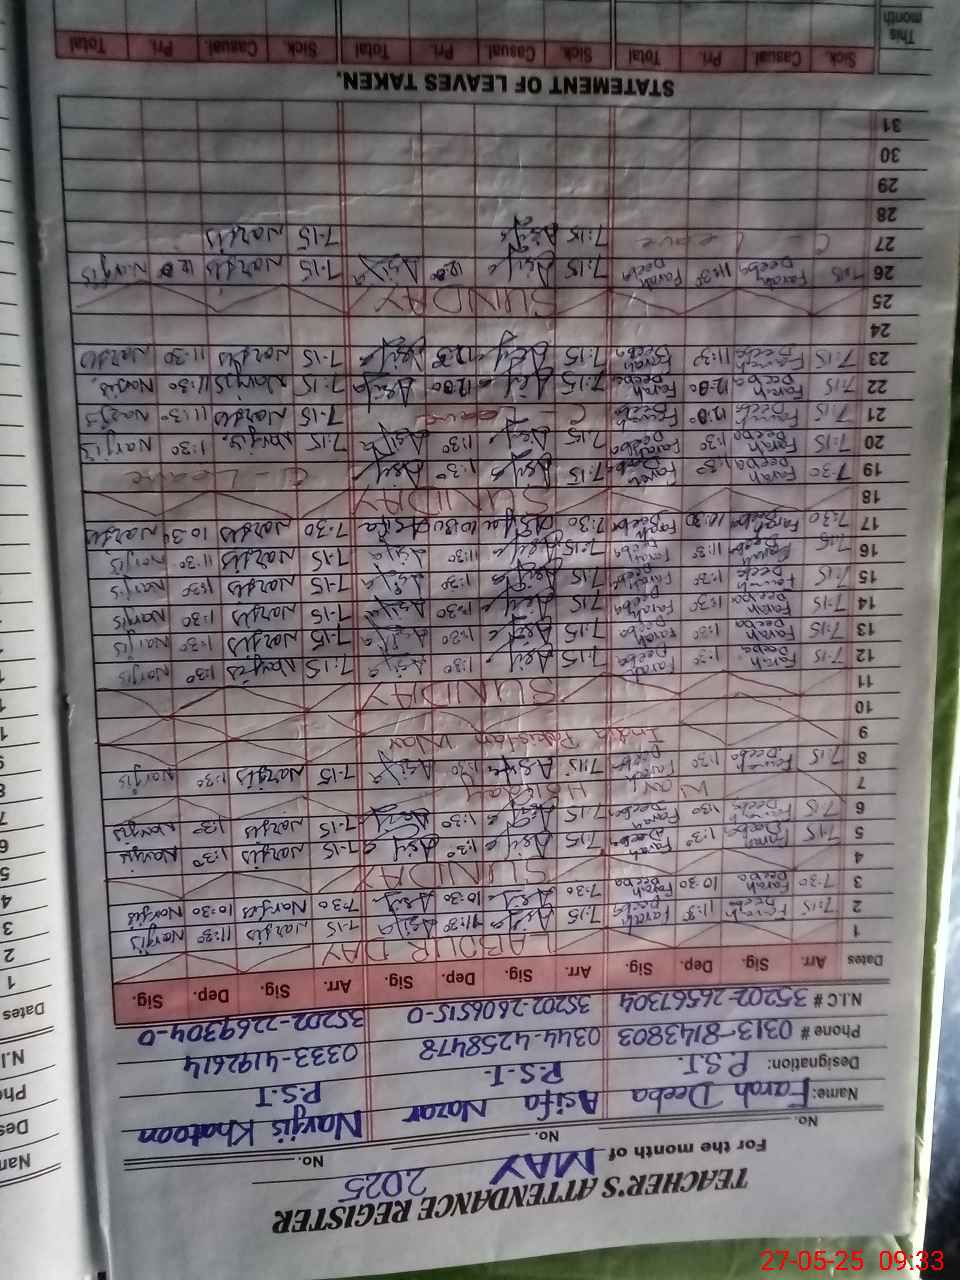 TEACHER'S ATTENDANCE REGISTER
For the month of MAY 2025
No. No. No.
Name: Farah Deeba Asifa Nazar Nargis Khatoon
Designation: P.S.T. P.S.T. P.S.T
Phone # 0313-8143803 0344-4258478 0333-4192614
N.I.C # 35202-26567304 35202-2606515-0 35202-2269304-0
Dates Arr. Sig. Dep. Sig. Arr. Sig. Dep. Sig. Arr. Sig. Dep. Sig.
1 LABOUR DAY
2 7:15 Farah Deeba 11:30 Farah Deeba 7:15 Asifa 11:30 Asifa 7-15 Nargis 11:30 Nargis
3 7:30 Farah Deeba 10:30 Farah Deeba 7:30 10:30 7:30 Nargis 10:30 Nargis
4 SUNDAY
5 7:15 Farah Deeba 1:30 Farah Deeba 7:15 Asifa 1:30 Asifa 7-15 Nargis 1:30 Nargis
6 7:15 Farah Deeba 1:30 Farah Deeba 7:15 Asifa 1:30 7-15 Nargis 1:30 Nargis
7 War Holiday
8 7:15 Farah Deeba 1:30 Farah Deeba 7:15 Asifa 1:30 Asifa 7-15 Nargis 1:30 Nargis
9 India Pakistan War
10
11 SUNDAY
12 7:15 Farah Deeba 1:30 Farah Deeba 7:15 Asifa 1:30 Asifa 7:15 Nargis 1:30 Nargis
13 7:15 Farah Deeba 1:30 Farah Deeba 7:15 Asifa 1:30 Asifa 7-15 Nargis 1:30 Nargis
14 7:15 Farah Deeba 1:30 Farah Deeba 7:15 Asifa 1:30 Asifa 7-15 Nargis 1:30 Nargis
15 7:15 Farah Deeba 1:30 Farah Deeba 7:15 Asifa 1:30 Asifa 7-15 Nargis 1:30 Nargis
16 7:15 Farah Deeba 11:30 Farah Deeba 7:15 Asifa 11:30 Asifa 7-15 Nargis 11:30 Nargis
17 7:30 Farah Deeba 10:30 Farah Deeba 7:30 Asifa 10:30 Asifa 7:30 Nargis 10:30 Nargis
18 SUNDAY
19 7:30 Farah Deeba 1:30 7:15 Asifa 1:30 C-Leave
20 7:15 Farah Deeba 1:30 Farah Deeba 7:15 Asifa 1:30 Asifa 7:15 Nargis 1:30 Nargis
21 7:15 Farah Deeba 12:00 Farah Deeba C-Leave 7-15 Nargis 11:30 Nargis
22 7:15 Farah Deeba 12:00 Farah Deeba 7:15 Asifa 12:00 Asifa 7:15 Nargis 11:30 Nargis
23 7:15 Farah Deeba 11:30 Farah Deeba 7:15 Asifa 7-15 Nargis 11:30 Nargis
24
25 SUNDAY
26 7:15 Farah Deeba 11:30 Farah Deeba 7:15 Asifa 12:00 Asifa 7-15 Nargis 12:00 Nargis
27 C-Leave 7:15 Asifa 7-15 Nargis
28
29
30
31
STATEMENT OF LEAVES TAKEN.
Sick. Casual Pri. Total Sick. Casual Pri. Total Sick. Casual. Pri. Total
This month
27-05-25 09:33